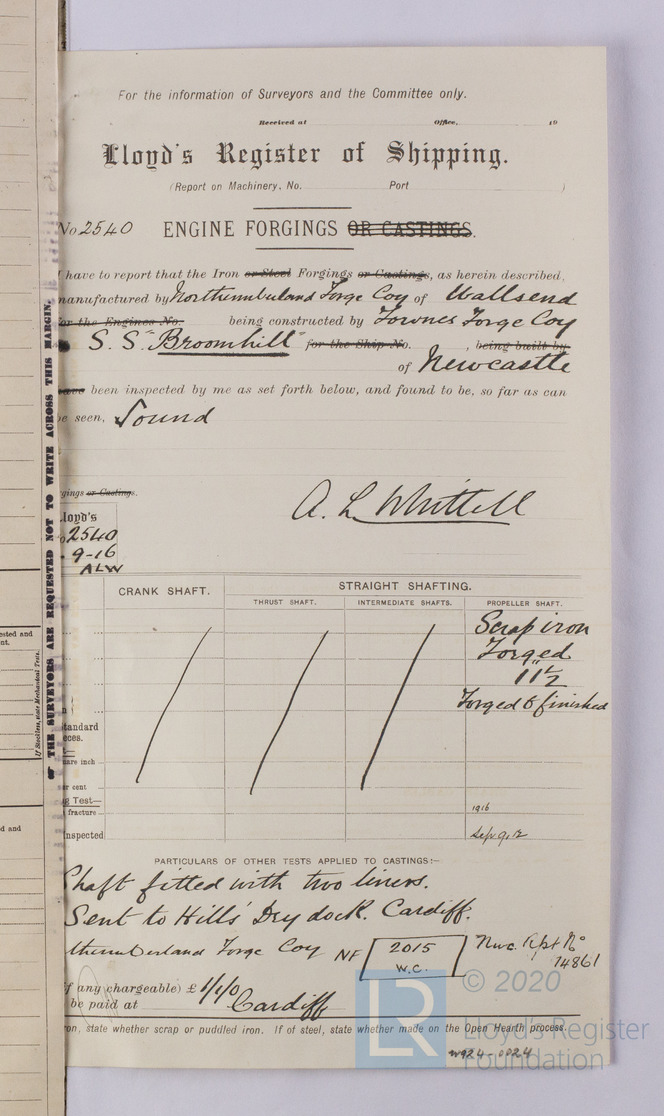 For the information of Surveyors and the Committee only.
Received at Office, 19
Lloyd's Register of Shipping.
(Report on Machinery, No. Port )
No. 2540 ENGINE FORGINGS OR CASTINGS.
I have to report that the Iron or Steel Forgings or Castings, as herein described,
manufactured by Northumberland Forge Coy of Wallsend
for the Engines No. being constructed by Townes Forge Coy
S.S. "Broomhill" for the Ship No. , being built by
of Newcastle
have been inspected by me as set forth below, and found to be, so far as can
be seen, Sound
rgings or Castings.
A. L. Whittell
Lloyd's
2540
9-16
ALW
CRANK SHAFT. STRAIGHT SHAFTING.
THRUST SHAFT. INTERMEDIATE SHAFTS. PROPELLER SHAFT.
Scrap iron
Forged
11½"
Forged & finished
tandard
eces.
uare inch
er cent
g Test—
fracture
1916
nspected Sep. 9, 12
PARTICULARS OF OTHER TESTS APPLIED TO CASTINGS:—
Shaft fitted with two liners.
Sent to Hills' Dry dock. Cardiff.
thumberland Forge Coy NF 2015 W.C. Nwc. Rpt No
74861
if any chargeable) £ 1/1/0
be paid at Cardiff
ron, state whether scrap or puddled iron. If of steel, state whether made on the Open Hearth process.
THE SURVEYORS ARE REQUESTED NOT TO WRITE ACROSS THIS MARGIN.
ested and
nt.
If Steel, state Mechanical Tests.
d and
© 2020
LR
Lloyd's Register
Foundation
W924-0024